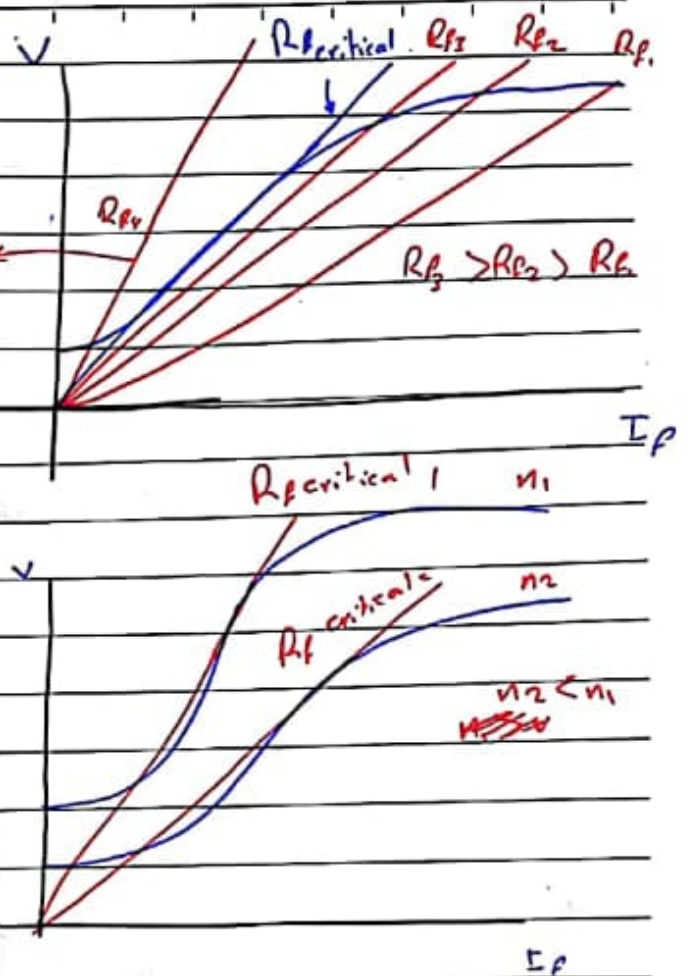 V Rf critical Rf3 Rf2 Rf1
Rf4
Rf3 > Rf2 > Rf1
If
Rf critical 1 n1
V
Rf critical 2 n2
n2 < n1
If